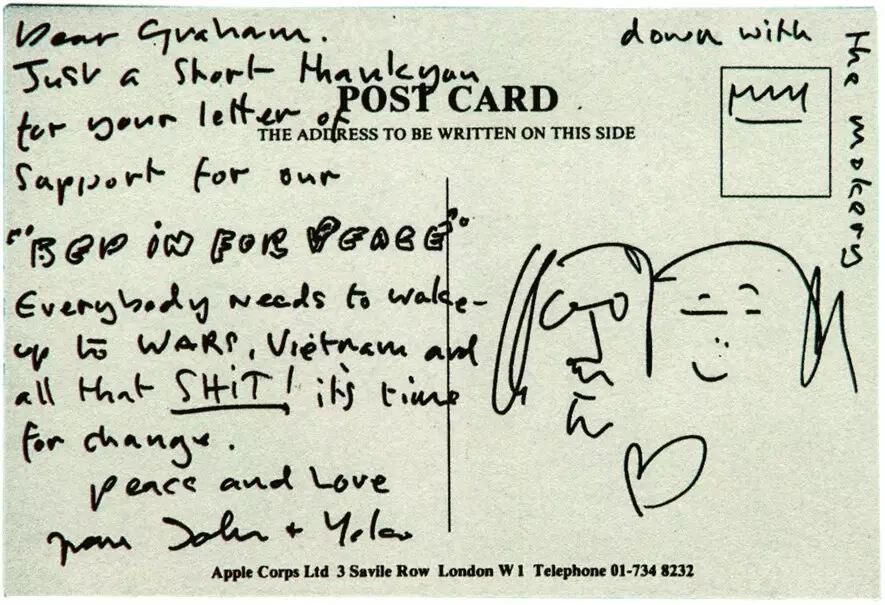 Dear Graham.
Just a short thankyou
for your letter of
Support for our
"BED IN FOR PEACE"
Everybody needs to wake-
up to WARS, Vietnam and
all that SHiT! it's time
for change.
peace and Love
from John + Yoko
POST CARD
THE ADDRESS TO BE WRITTEN ON THIS SIDE
down with
the mokers
Apple Corps Ltd 3 Savile Row London W1 Telephone 01-734 8232